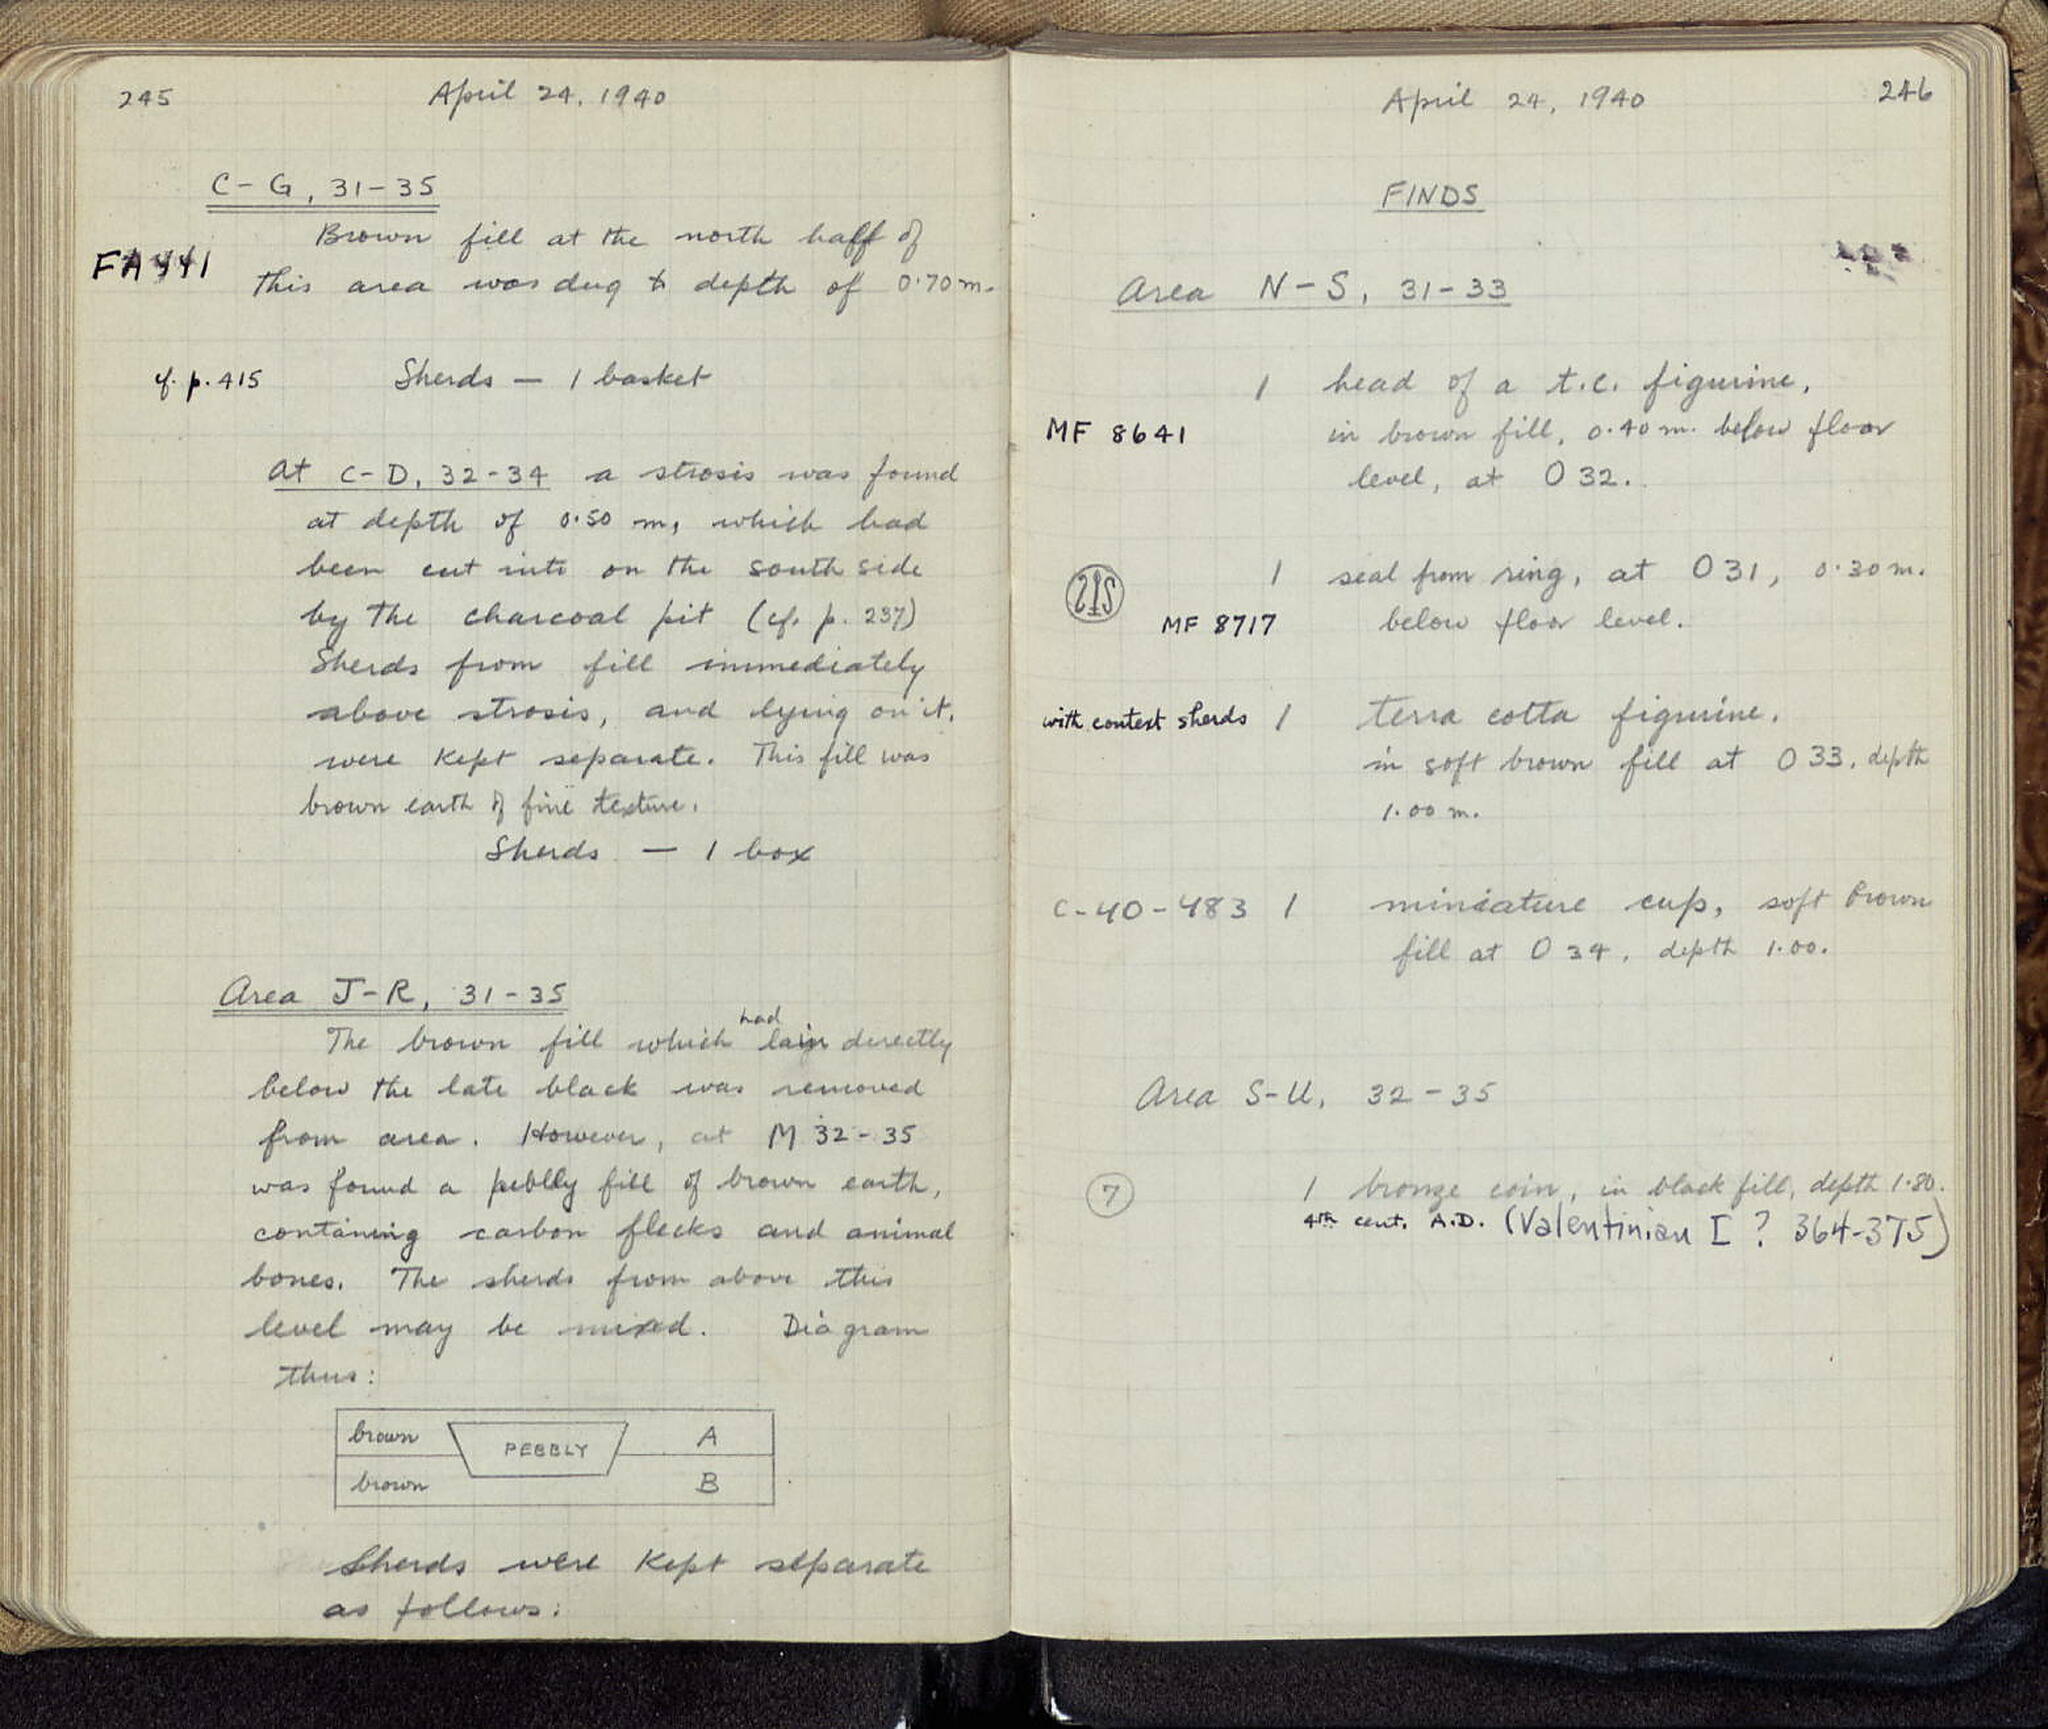 245
April 24, 1940
C-G, 31-35
Brown fill at the north half of
FA 441
this area was dug to depth of 0.70 m.
cf. p. 415
Sherds — 1 basket
At C-D, 32-34 a strosis was found
at depth of 0.50 m, which had
been cut into on the south side
by the charcoal pit (cf. p. 237)
Sherds from fill immediately
above strosis, and lying on it,
were kept separate. This fill was
brown earth of fine texture.
Sherds — 1 box
Area J-R, 31-35
had
The brown fill which lain directly
below the late black was removed
from area. However, at M 32-35
was found a pebbly fill of brown earth,
containing carbon flecks and animal
bones. The sherds from above this
level may be mixed. Diagram
thus:
brown PEBBLY A
brown B
Sherds were kept separate
as follows:
April 24, 1940
246
FINDS
Area N-S, 31-33
1 head of a t.c. figurine,
MF 8641 in brown fill, 0.40 m. below floor
level, at O 32.
1 seal from ring, at O 31, 0.30 m.
MF 8717 below floor level.
with context sherds 1 terra cotta figurine,
in soft brown fill at O 33, depth
1.00 m.
C-40-483 1 miniature cup, soft brown
fill at O 34, depth 1.00.
Area S-U, 32-35
7 1 bronze coin, in black fill, depth 1.80.
4th cent. A.D. (Valentinian I ? 364-375)